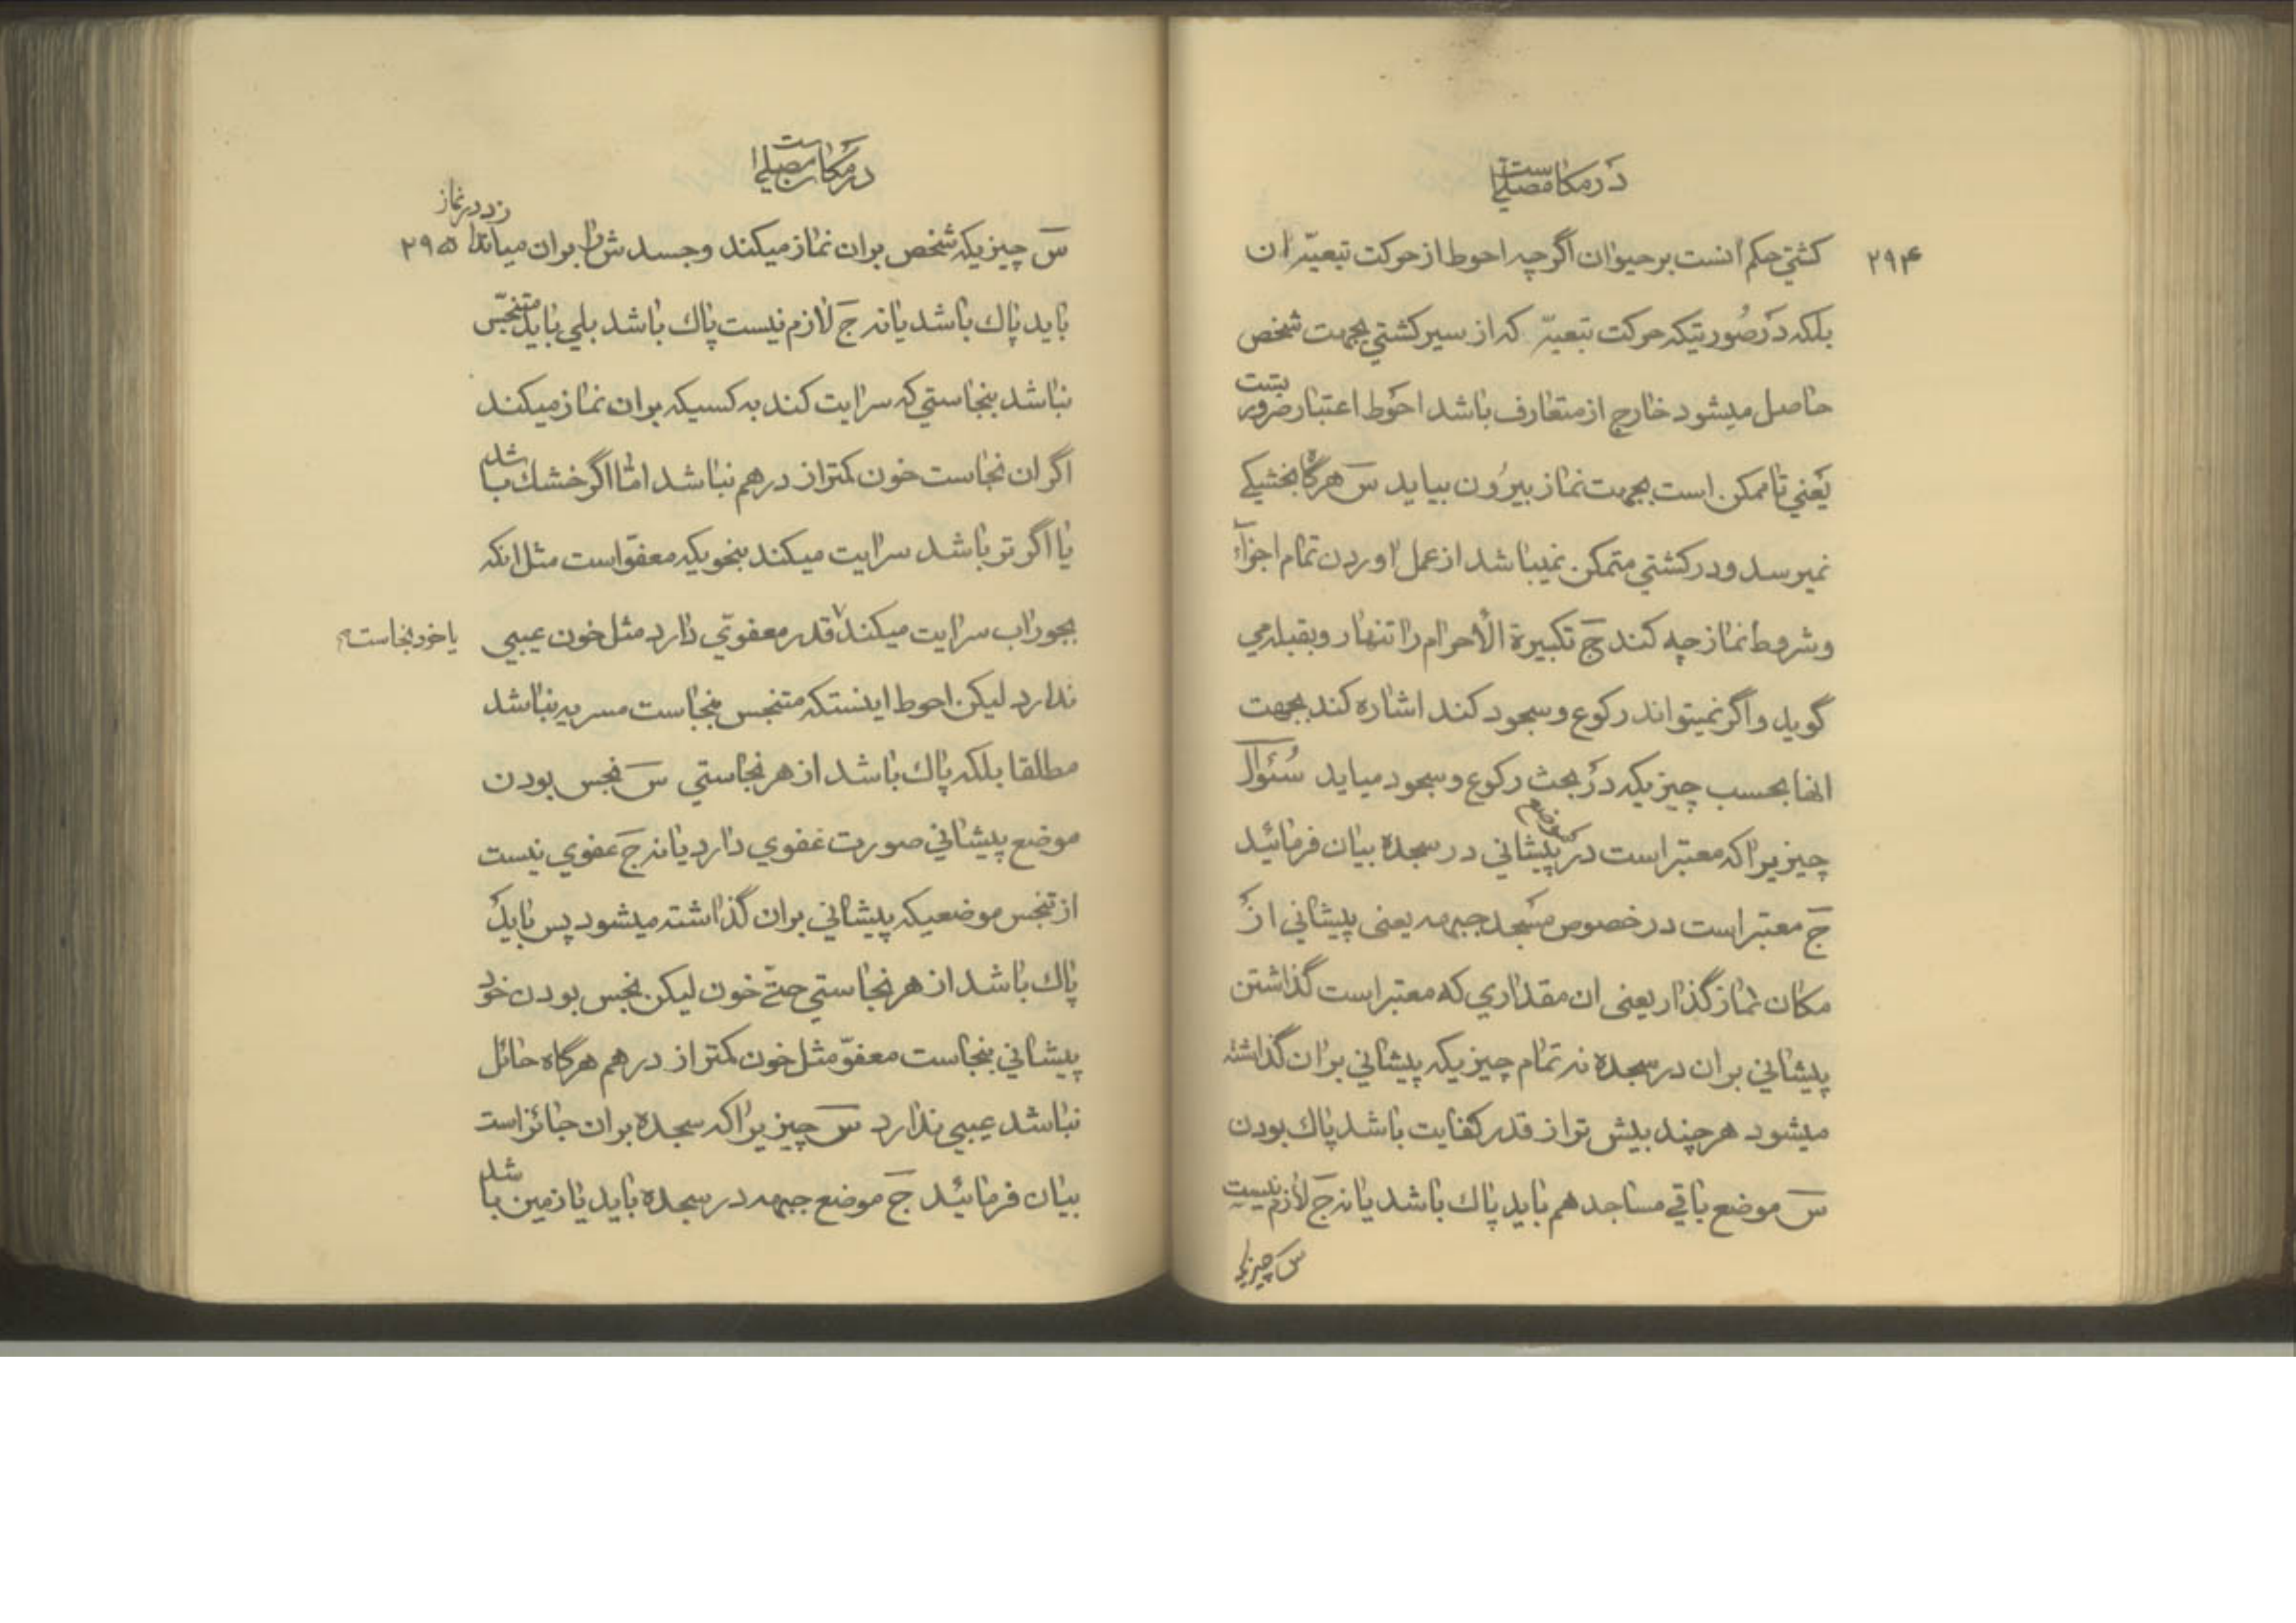 در مکان مصلی است
۲۹۴
کشتي حکم انست بر حیوان اگرچه احوط از حرکت تبعیّه ان
بلکه در صُورتیکه حرکت تبعیّه که از سیر کشتي بجهت شخص
حاصل میشود خارج از متعارف باشد احوط اعتبار ضرورتست
یَعني تا ممکن است بجهت نماز بیرُون بیاید سَ هرگاه بخشیکے
نمیرسد و در کشتي متمکن نمیباشد از عمل اوردن تمام اجزآء
و شروط نماز چه کند جَ تکبیرة الأحرام را تنها رو بقبله مي
گوید و اگر نمیتواند رکوع و سجود کند اشاره کند بجهت
انها بحسب چیزیکه در بحث رکوع و سجود میاید سُئوال
چیزیرا که معتبر است در موضع پیشاني در سجده بیان فرمائید
جَ معتبر است در خصوص مسجد جبهه یعنی پیشاني از
مکان نماز گذار یعنی ان مقداري که معتبر است گذاشتن
پیشاني بر ان در سجده نه تمام چیزیکه پیشاني بر ان گذاشته
میشود هر چند بیش تر از قدر کفایت باشد پاك بودن
سَ موضع باقي مساجد هم باید پاك باشد یا نه جَ لازم نیست
س چیزیکه
در مکان مصلی است
۲۹۵
سَ چیزیکه شخص بر ان نماز میکند و جسدش را بر ان میاندازد در نماز
باید پاك باشد یا نه جَ لازم نیست پاك باشد بلي باید متنجّس
نباشد بنجاستي که سرایت کند به کسیکه بر ان نماز میکند
اگر ان نجاست خون کمتر از درهم نباشد امّا اگر خشك باشد
یا اگر تر باشد سرایت میکند بنحویکه معفوّ است مثل انکه
بجوراب سرایت میکند قدر معفوّي دارد مثل خون عیبي
یا خود نجاست
ندارد لیکن احوط اینستکه متنجس بنجاست مسریه نباشد
مطلقا بلکه پاك باشد از هر نجاستي سَ نجس بودن
موضع پیشاني صورت عفوي دارد یا نه جَ عفوي نیست
از تنجس موضعیکه پیشاني بر ان گذاشته میشود پس باید
پاك باشد از هر نجاستي حتّے خون لیکن نجس بودن خود
پیشاني بنجاست معفوّ مثل خون کمتر از درهم هرگاه حائل
نباشد عیبي ندارد سَ چیزیرا که سجده بر ان جائز است
بیان فرمائید جَ موضع جبهه در سجده باید یا زمین باشد